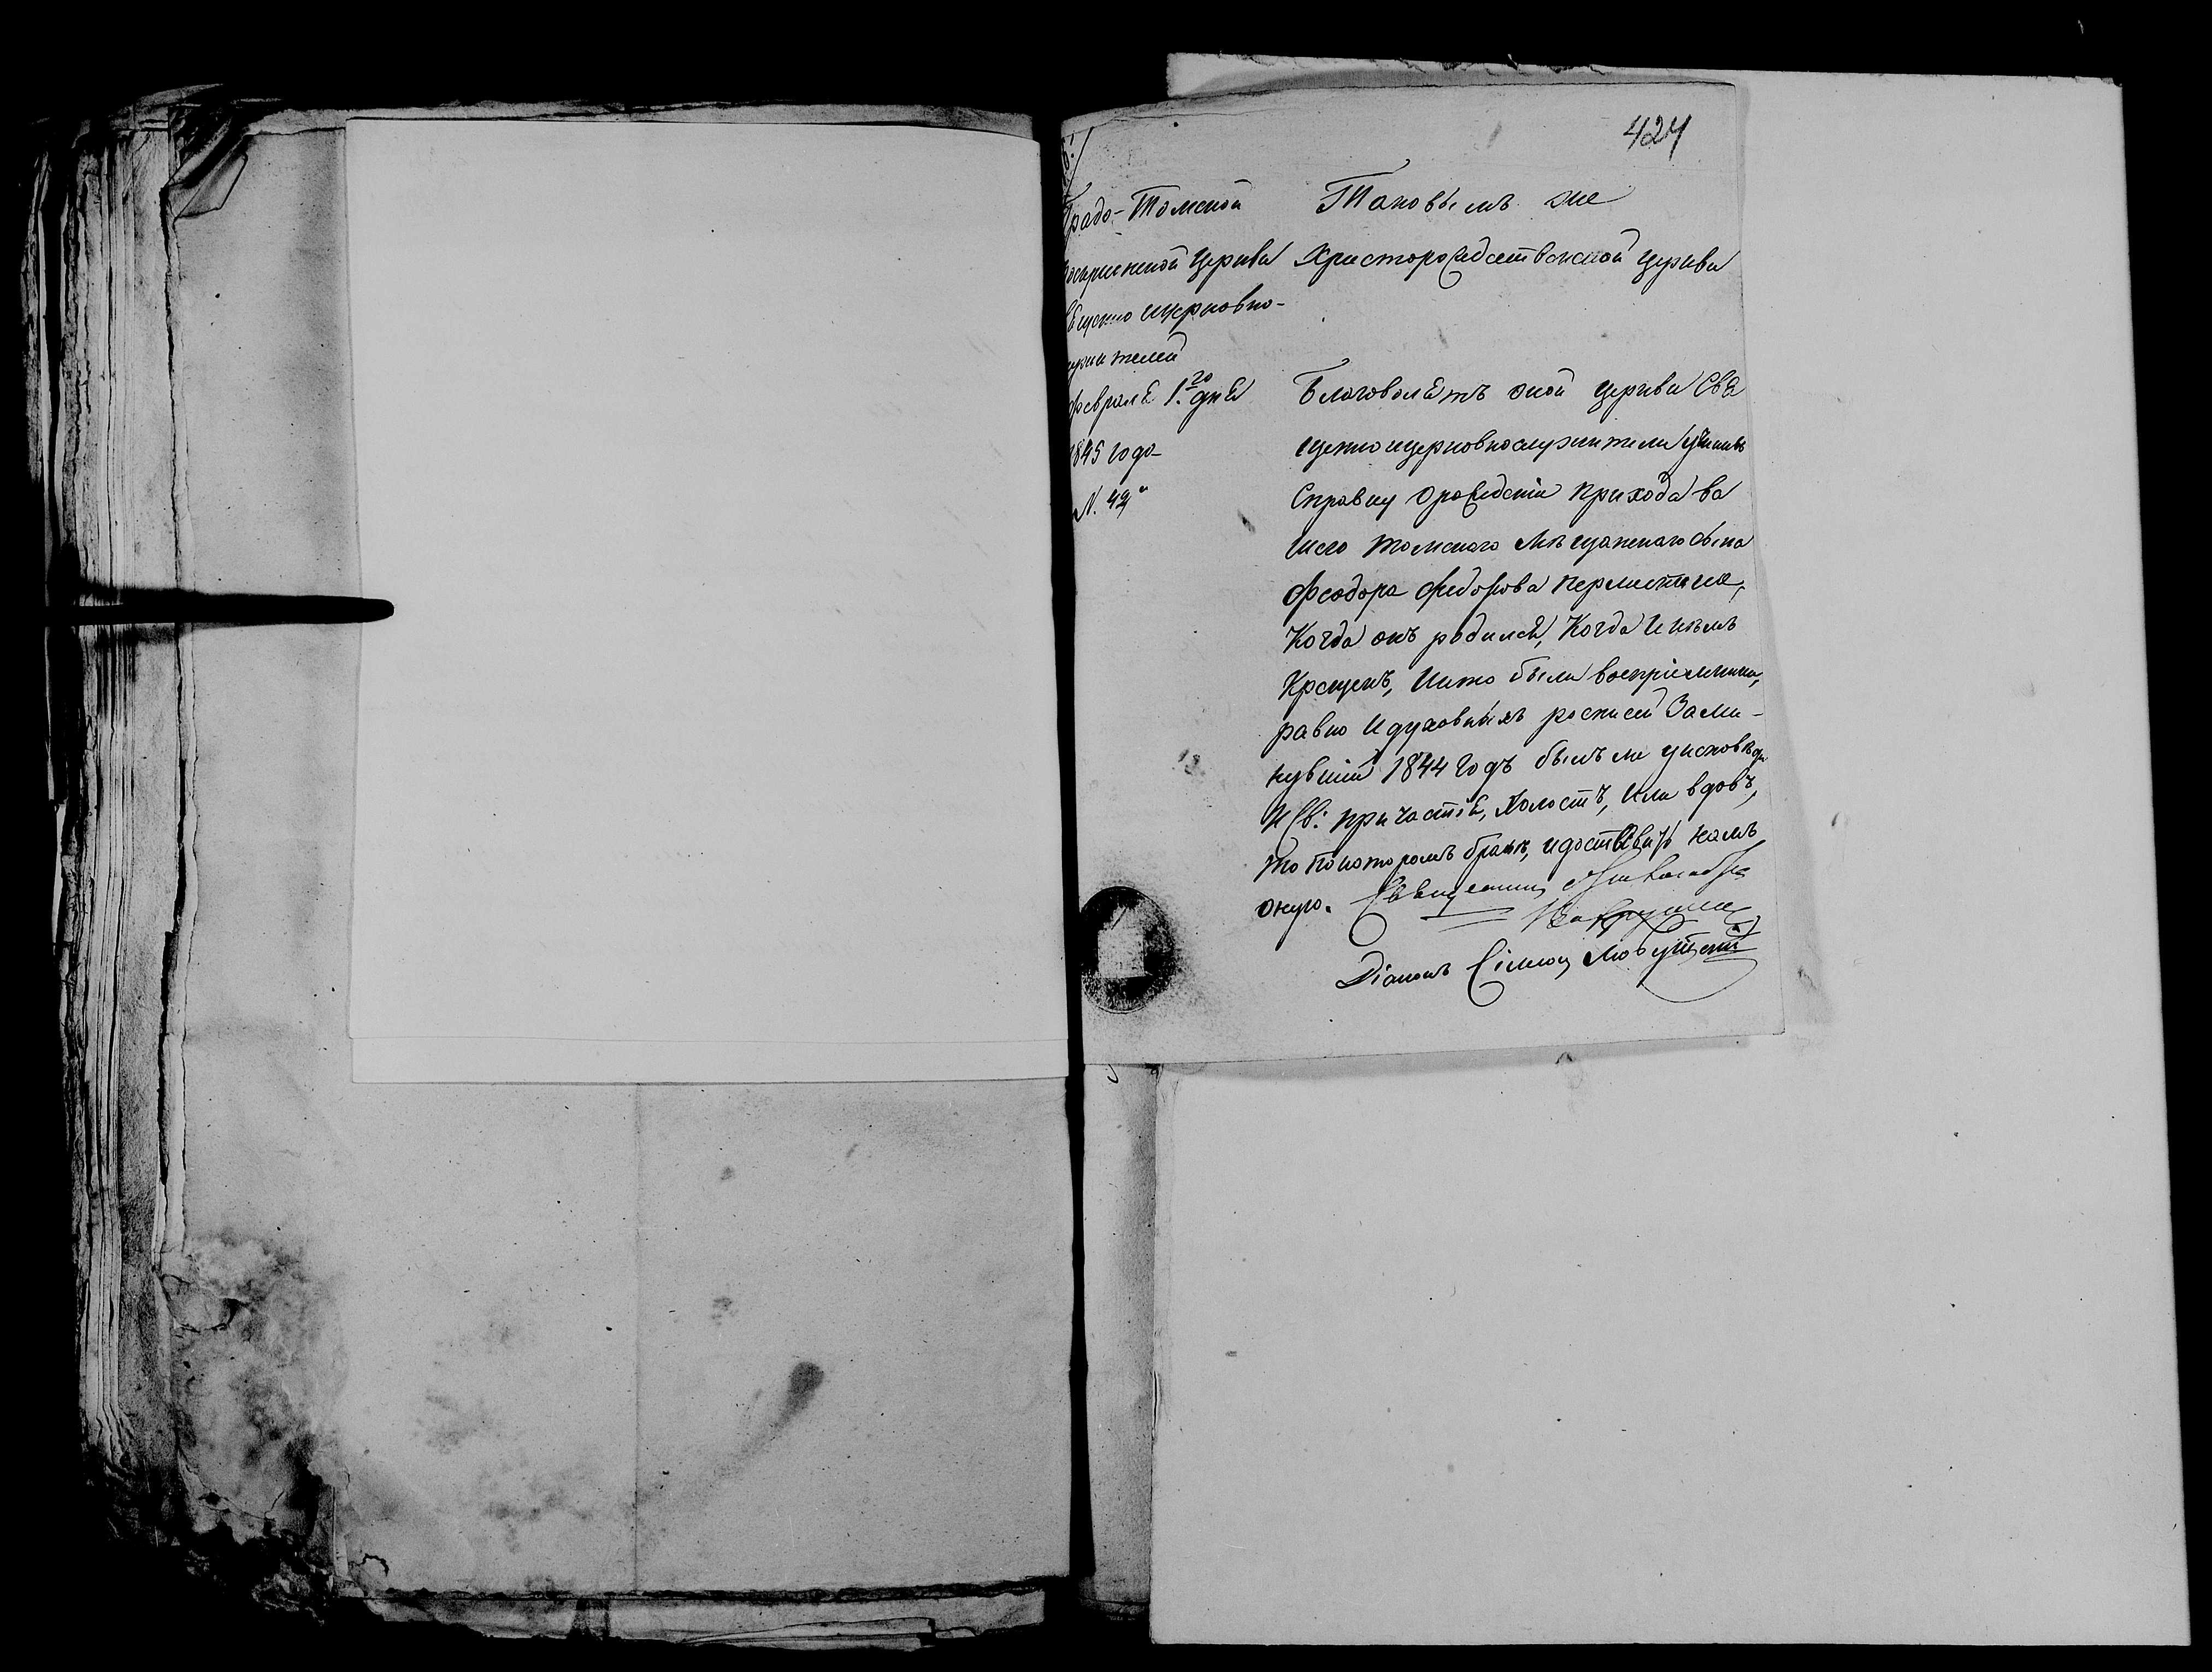 424
Градо-Томской
Воскресенской Церкви
Священно церковно-
служителей
Февраля 1.го дня
1845 года
N. 42
Таковымъ же
Христорождественской Церкви
Благоволятъ оной церкви Свя
щенноцерковнослужители учинить
Справку о рождении прихода ва
шего томскаго мѣщанскаго сына
Феодора Федорова
Когда онъ родился, Когда И кѣмъ
Крещенъ, Икто были воспріемники,
равно И духовныхъ росписей За ми-
нувший 1844 годъ былъ ли у исповѣди
И Св: причастія, Холостъ, Или вдовъ,
то по которомъ бракѣ, и доставить намъ
оную. Священникъ
Діаконъ Сімеонъ